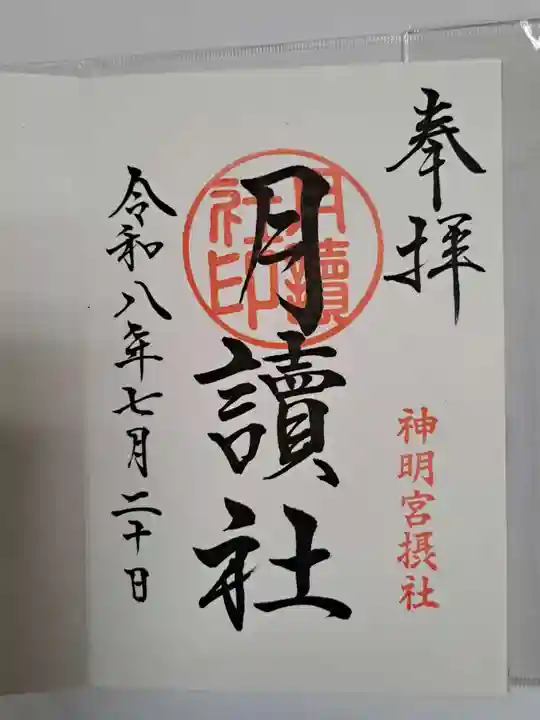 奉拝
神明宮摂社
月讀社
月讀社印
令和八年七月二十日